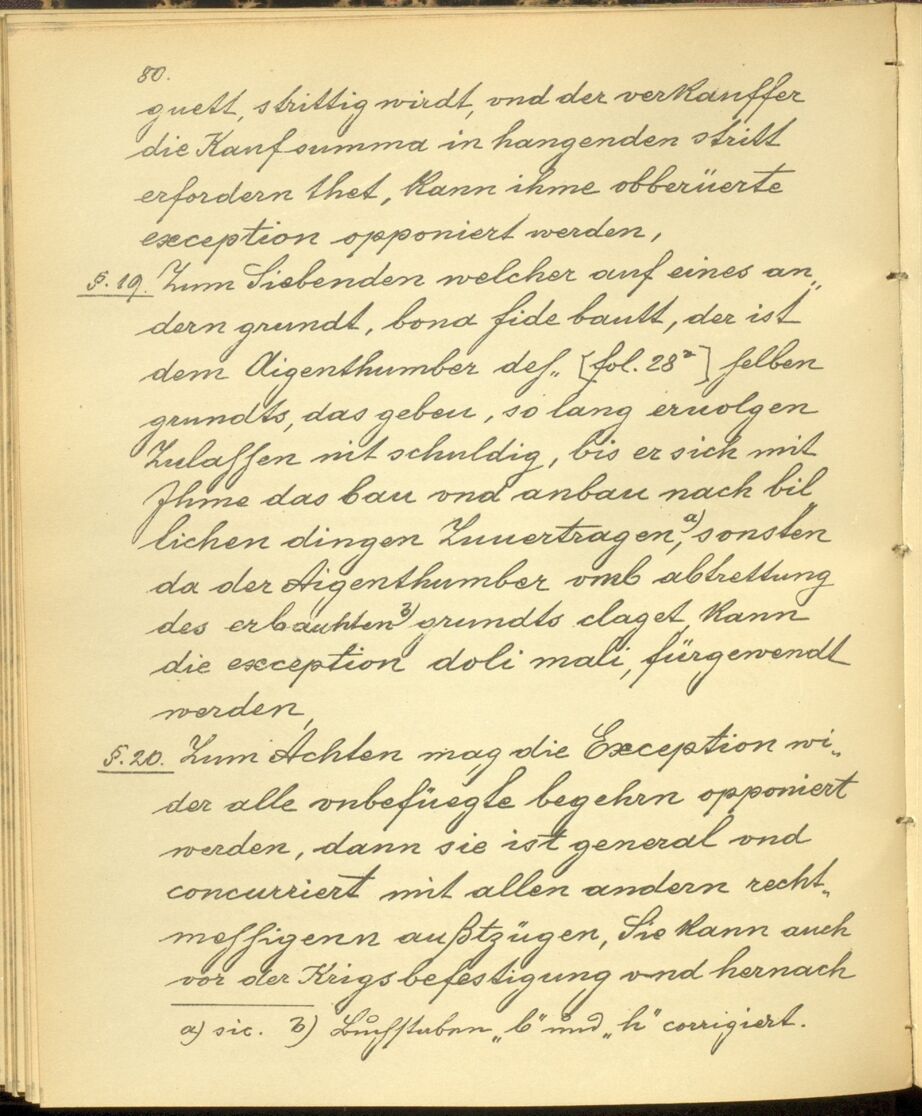 80.
guett, strittig wirdt, vnd der verkauffer
die Kaufsumma in hangenden stritt
erfordern thet, kann ihme obberüerte
exception opponiert werden,
§. 19. Zum Siebenden welcher auf eines an„
dern grundt, bona fide bautt, der ist
dem Aigenthumber des„ [fol. 28ª] selben
grundts, das gebeu, so lang eruolgen
Zulassen nit schuldig, bis er sich mit
Ihme das bau vnd anbau nach bil„
lichen dingen Zuuertragen,ª) sonsten
da der Aigenthumber vmb abtrettung
des erbauhten b) grundts claget, kann
die exception doli mali, fürgewendt
werden,
§. 20. Zum Achten mag die Exception wi„
der alle vnbefüegte begehrn opponiert
werden, dann sie ist general vnd
concurriert mit allen andern recht„
messigenn außtzügen, Sie kann auch
vor der Krigsbefestigung vnd hernach
a) sic. b) Buchstaben „b“ und „h“ corrigiert.